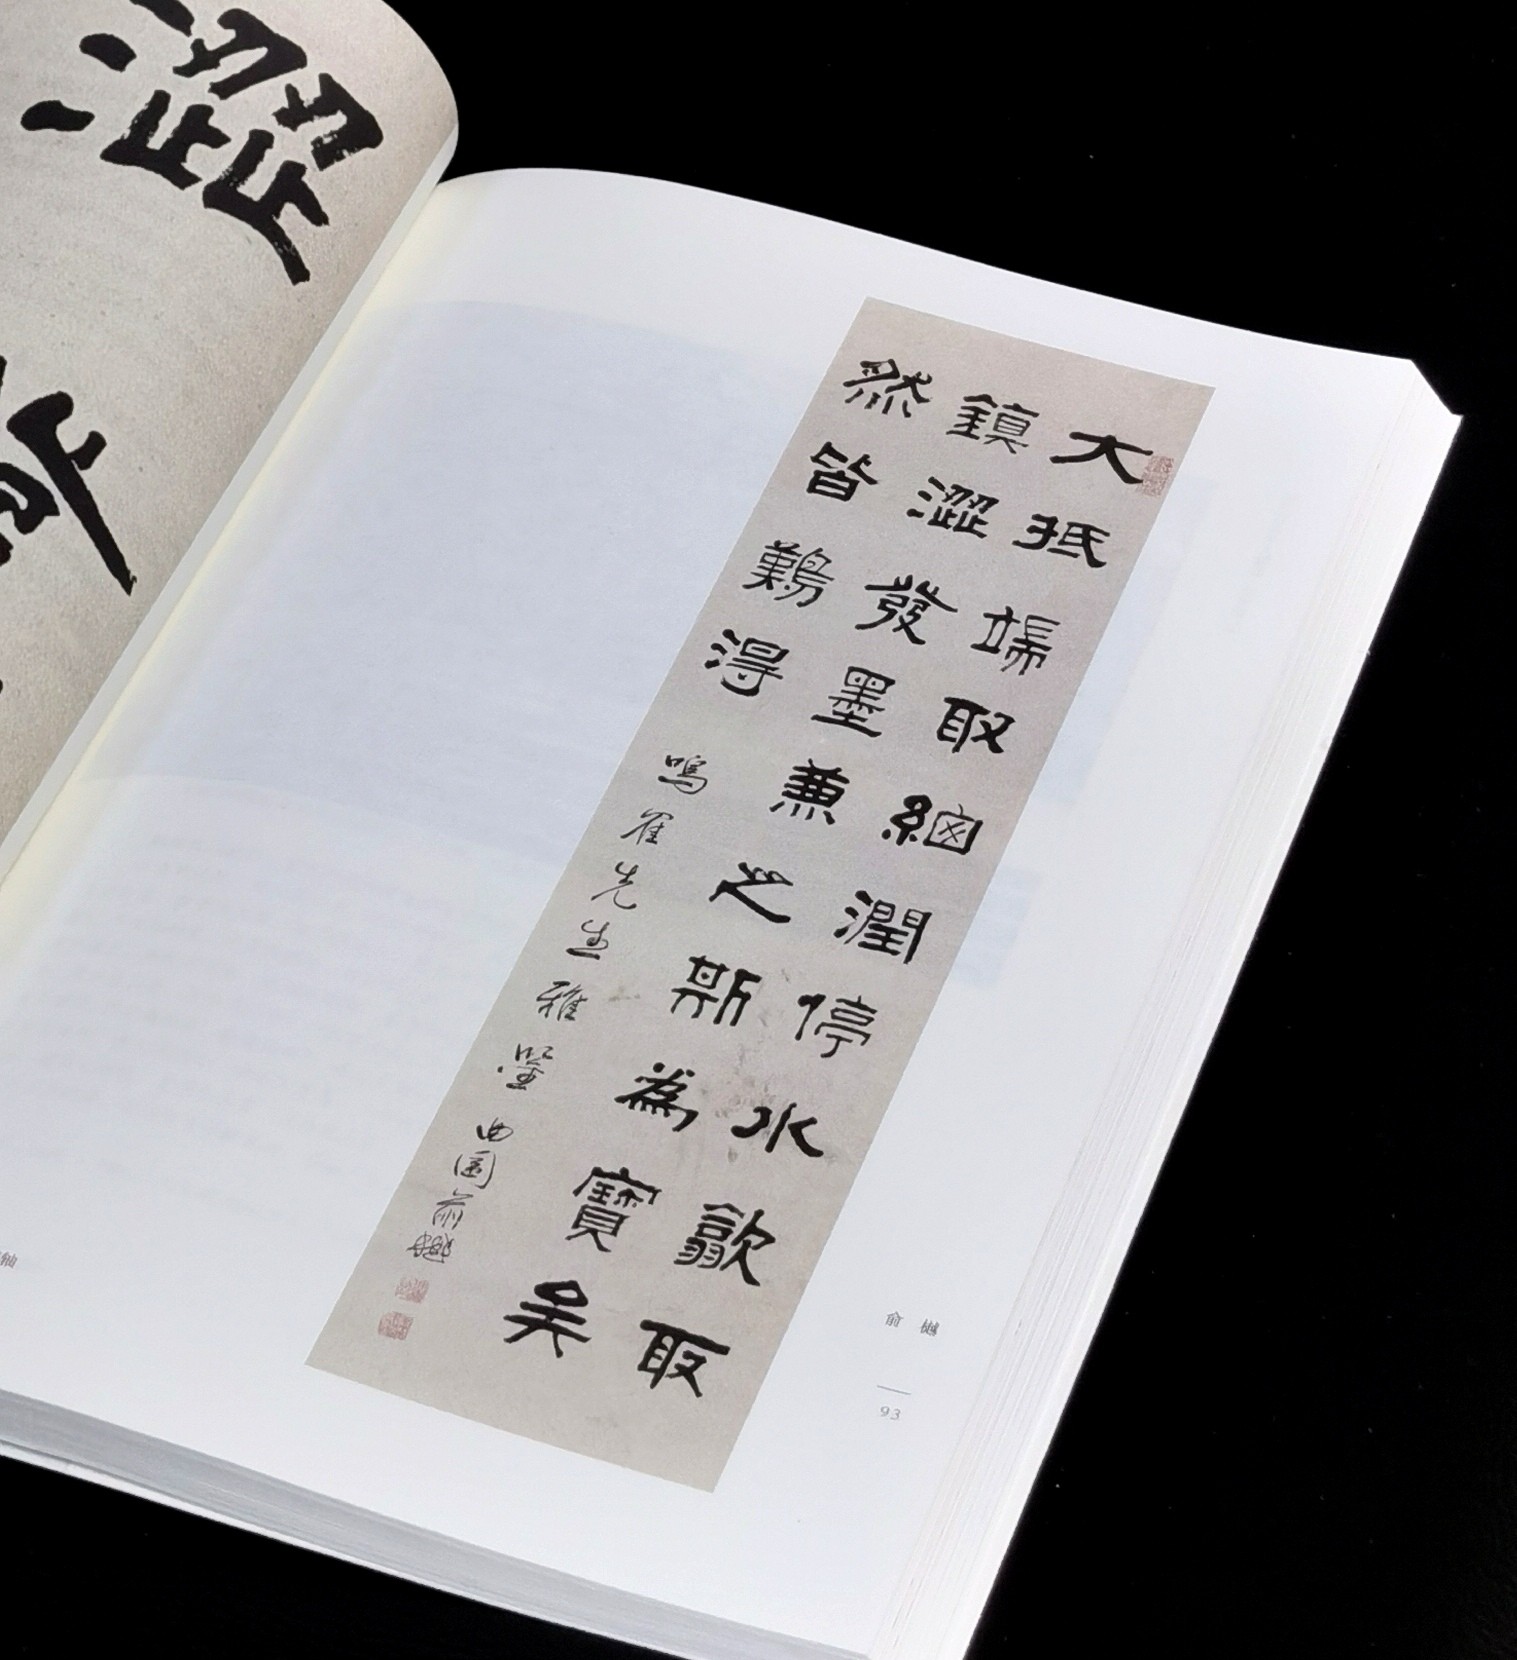 澀
大抵端取細潤停水歙取
鎮澀發墨兼之斯為寶矣
然皆難得
鳴隺先生雅鑒 曲園俞樾
俞樾
93
軸